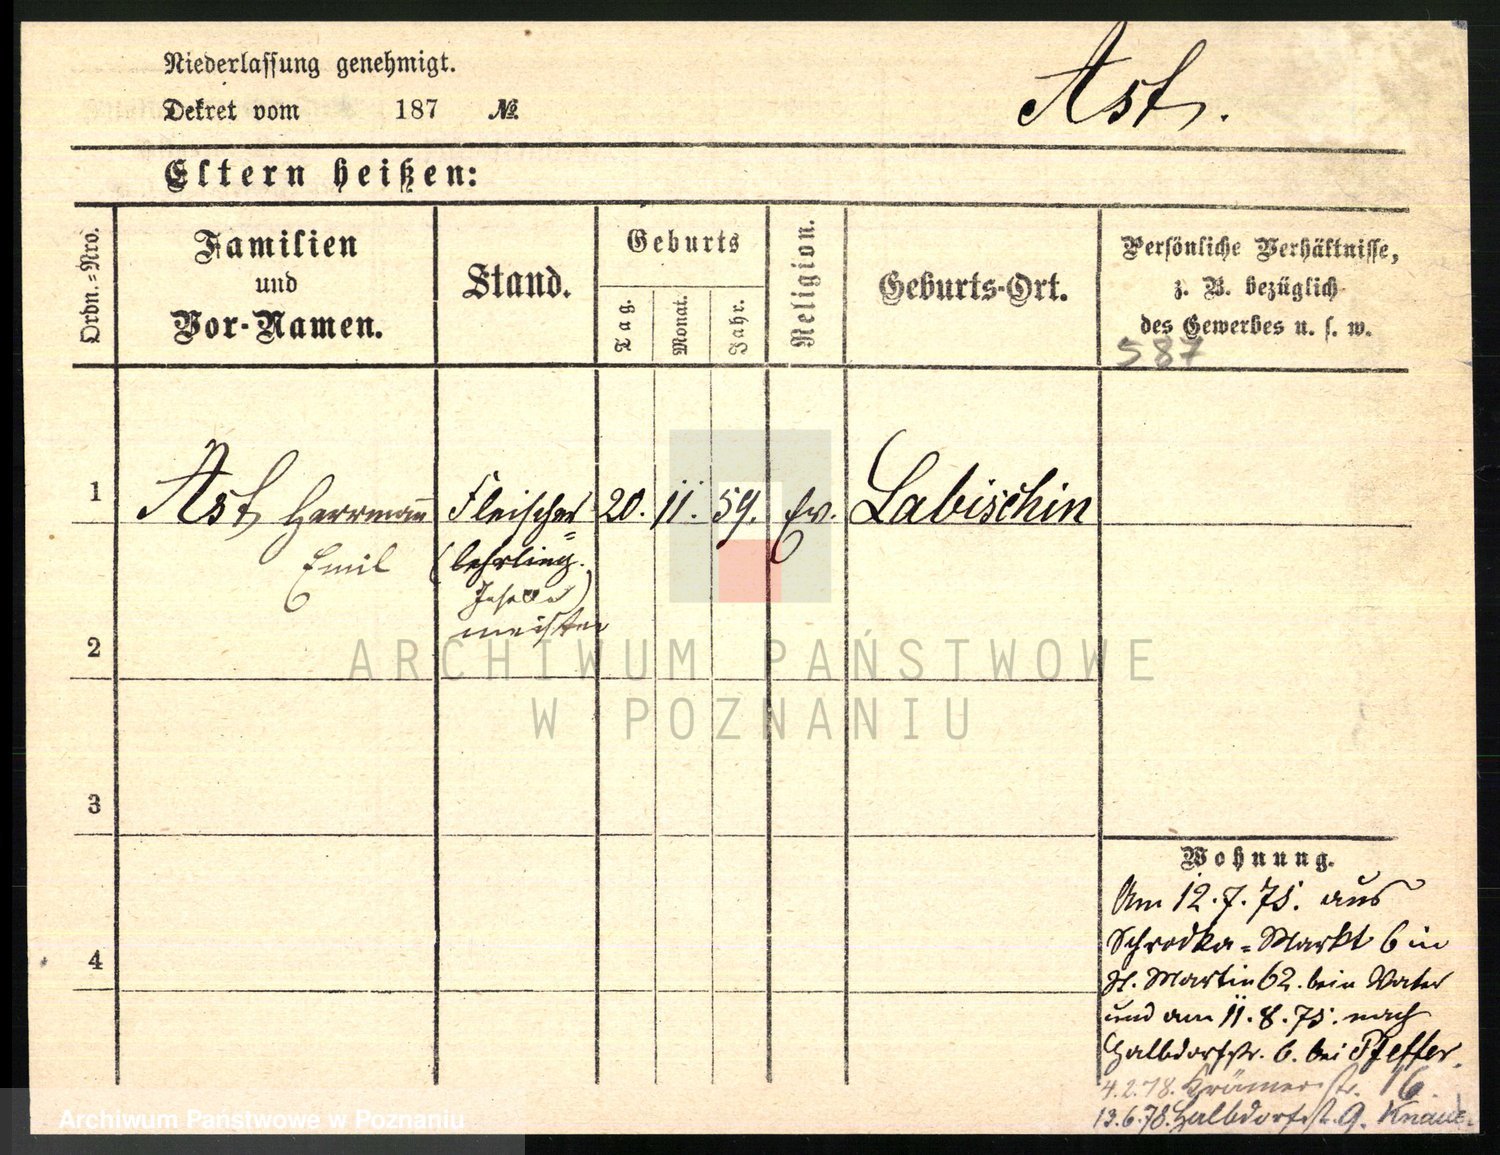 Niederlassung genehmigt.
Dekret vom 187 №
Ast.
Eltern heißen:
Ordn.-Nro.
Familien
und
Vor-Namen.
Stand.
Geburts
Tag.
Monat.
Jahr.
Religion.
Geburts-Ort.
Persönliche Verhältnisse,
z. B. bezüglich
des Gewerbes u. s. w.
587
1 Ast Herrmann Fleischer 20. 11. 59. Ev. Labischin
Emil (lehrling.
meister
2
3
4
Wohnung.
Am 12.7.75. aus
Schrodka-Markt 6 in
St. Martin 62. beim Vater
und am 11.8.75. nach
Halbdorfstr. 6. bei Pfeffer.
4.2.78. Krämerstr. 16.
13.6.78. Halbdorfstr. 9.
ARCHIWUM PAŃSTWOWE
W POZNANIU
Archiwum Państwowe w Poznaniu